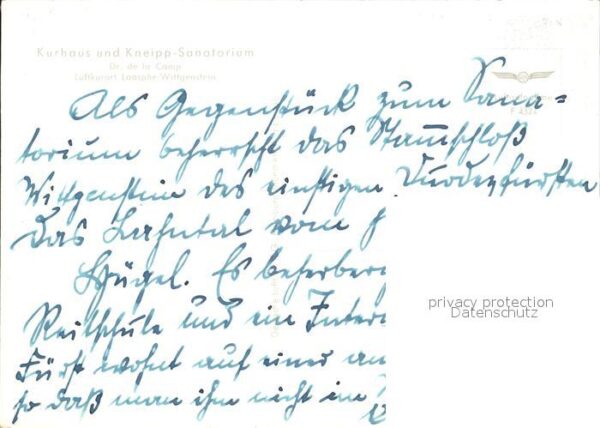 Kurhaus und Kneipp-Sanatorium
Dr. de la Camp
Luftkurort Laasphe-Wittgenstein
Als Gegenstück zum Sana=
torium beherrscht das Stammschloß
Wittgenstein des einstigen Duodezfürsten
das Lahntal vom
Hügel. Es beherberg
Reitschule und ein Inter
Fürst wohnt auf einer an
so daß man ihn nicht im
privacy protection
Datenschutz